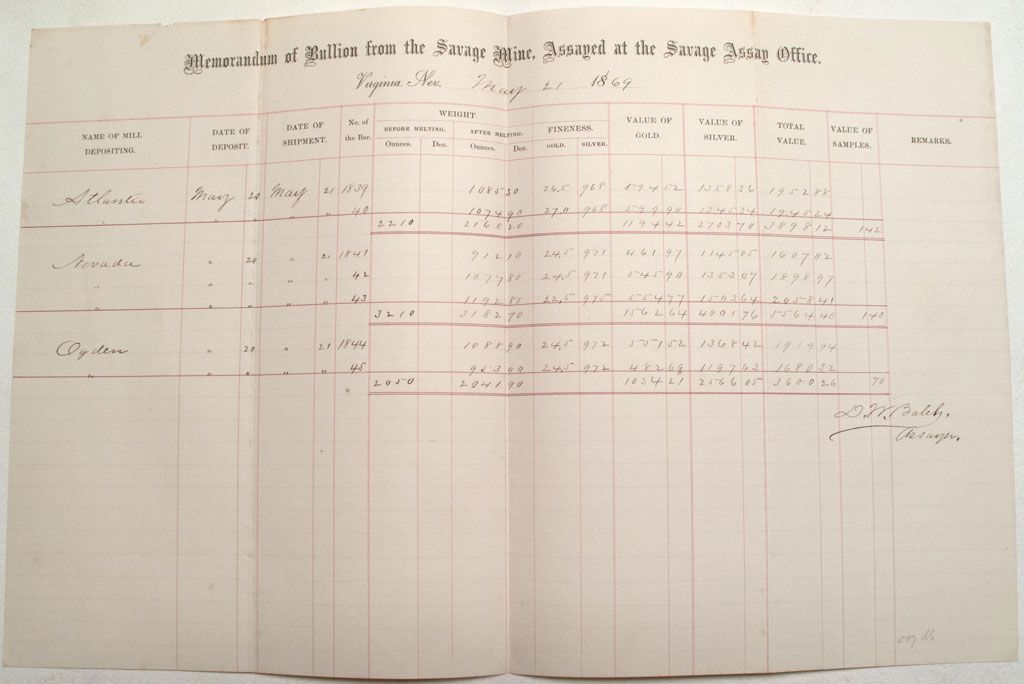 Memorandum of Bullion from the Savage Mine, Assayed at the Savage Assay Office.
Virginia, Nev. May 21 1869
NAME OF MILL DEPOSITING. DATE OF DEPOSIT. DATE OF SHIPMENT. No. of the Bar. WEIGHT. FINENESS. VALUE OF GOLD. VALUE OF SILVER. TOTAL VALUE. VALUE OF SAMPLES. REMARKS.
BEFORE MELTING. AFTER MELTING. GOLD. SILVER.
Ounces. Dec. Ounces. Dec.
Atlantic May 20 May 21 1839 1085 30 26,5 968 594 52 1358 36 1952 88
" " " " 40 1074 90 27 0 968 599 90 1345 34 1945 24
2210 2160 20 1194 42 2703 70 3898 12 1 42
Nevada " 20 " 21 1841 912 10 24,5 971 461 97 1145 05 1607 02
" " " " " 42 1077 80 24,5 971 545 90 1353 07 1898 97
" " " " " 43 1192 80 22,5 975 554 77 1503 64 2058 41
3210 3182 70 1562 64 4001 76 5564 40 1 40
Ogden " 20 " 21 1844 1088 90 24,5 972 551 52 1368 42 1919 94
" " " " " 45 953 00 24,5 972 482 69 1197 63 1680 32
2050 2041 90 1034 21 2566 05 3600 26 70
D. W. Balch.
Assayer.